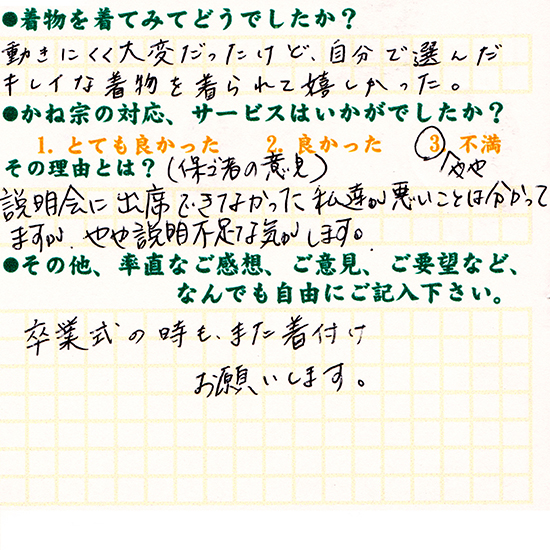 ●着物を着てみてどうでしたか?
動きにくく大変だったけど、自分で選んだ
キレイな着物を着られて嬉しかった。
●かね宗の対応、サービスはいかがでしたか?
1. とても良かった 2. 良かった 3. 不満
やや
その理由とは? (保ゴ者の意見)
説明会に出席できてなかった私達が悪いことは分かって
ますが、やや説明不足な気がします。
●その他、率直なご感想、ご意見、ご要望など、
なんでも自由にご記入下さい。
卒業式の時も、また着付け
お願いします。